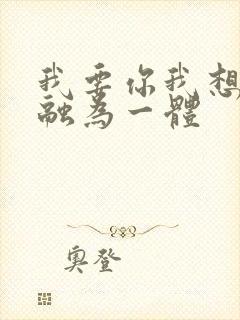 我要你我想
融為一體
奧登